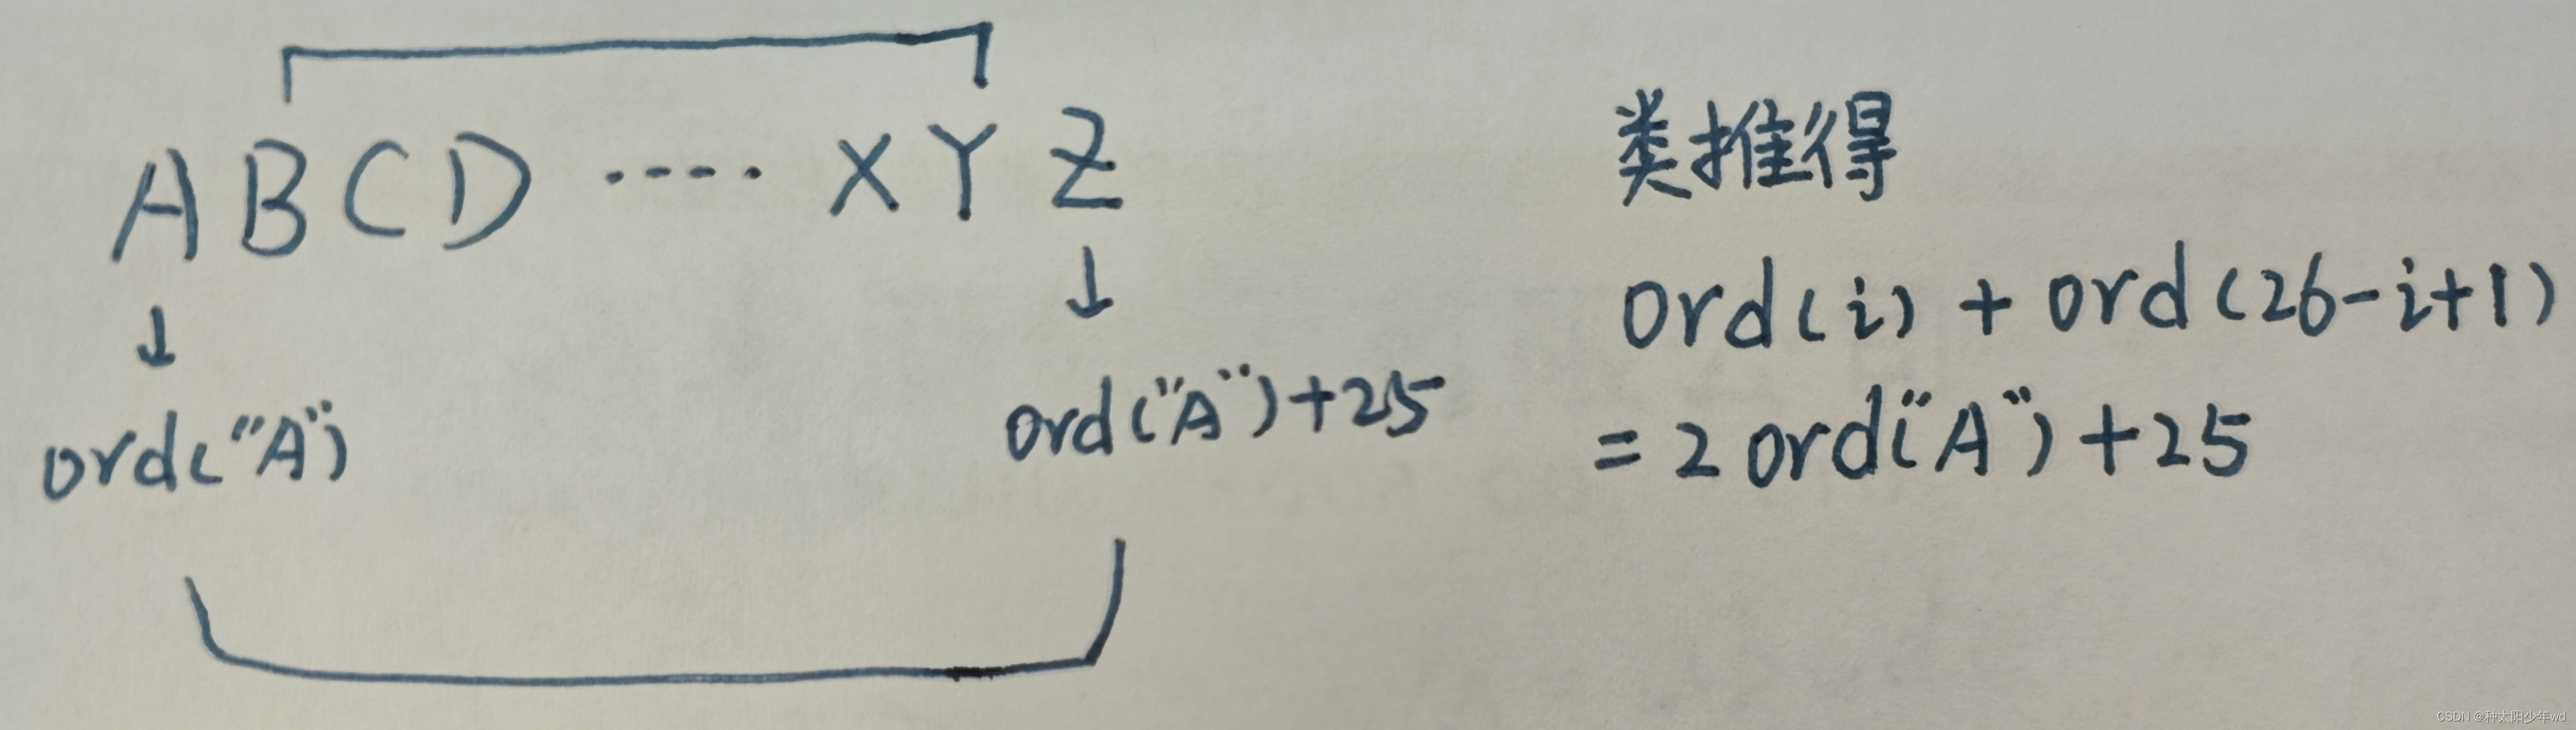 A B C D ····· X Y Z
ord("A")
ord("A")+25
类推得
ord(i) + ord(26-i+1)
= 2 ord("A") + 25
CSDN @种太阳少年wd